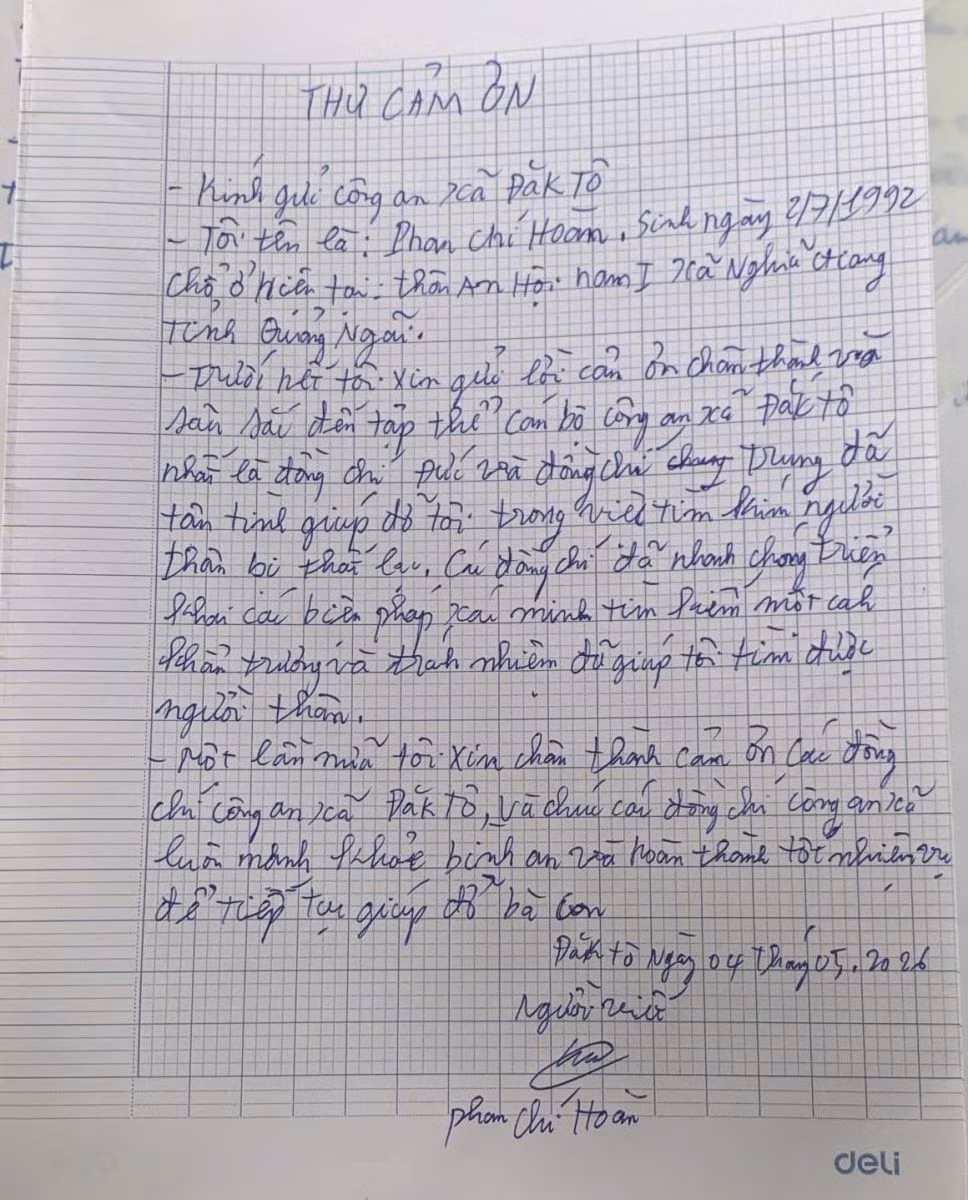 THƯ CẢM ƠN
- Kính gửi công an xã Đăk Tô
- Tôi tên là: Phan Chí Hoàn, Sinh ngày 2/7/1992
Chỗ ở hiện tại: thôn An Hội nam I xã Nghĩa Giang
Tỉnh Quảng Ngãi.
- Trước hết tôi xin gửi lời cảm ơn chân thành và
sâu sắc đến tập thể cán bộ công an xã Đăk Tô
nhất là đồng chí Đức và đồng chí Trung đã
tận tình giúp đỡ tôi trong việc tìm kiếm người
thân bị thất lạc, Các đồng chí đã nhanh chóng triển
khai các biện pháp xác minh tìm kiếm một cách
khẩn trương và trách nhiệm đã giúp tôi tìm được
người thân.
- Một lần nữa tôi xin chân thành cảm ơn các đồng
chí công an xã Đăk Tô, và chúc các đồng chí công an xã
luôn mạnh khỏe bình an và hoàn thành tốt nhiệm vụ
để tiếp tục giúp đỡ bà con
Đăk Tô Ngày 04 tháng 05. 2026
Người viết
Phan Chí Hoàn
deli